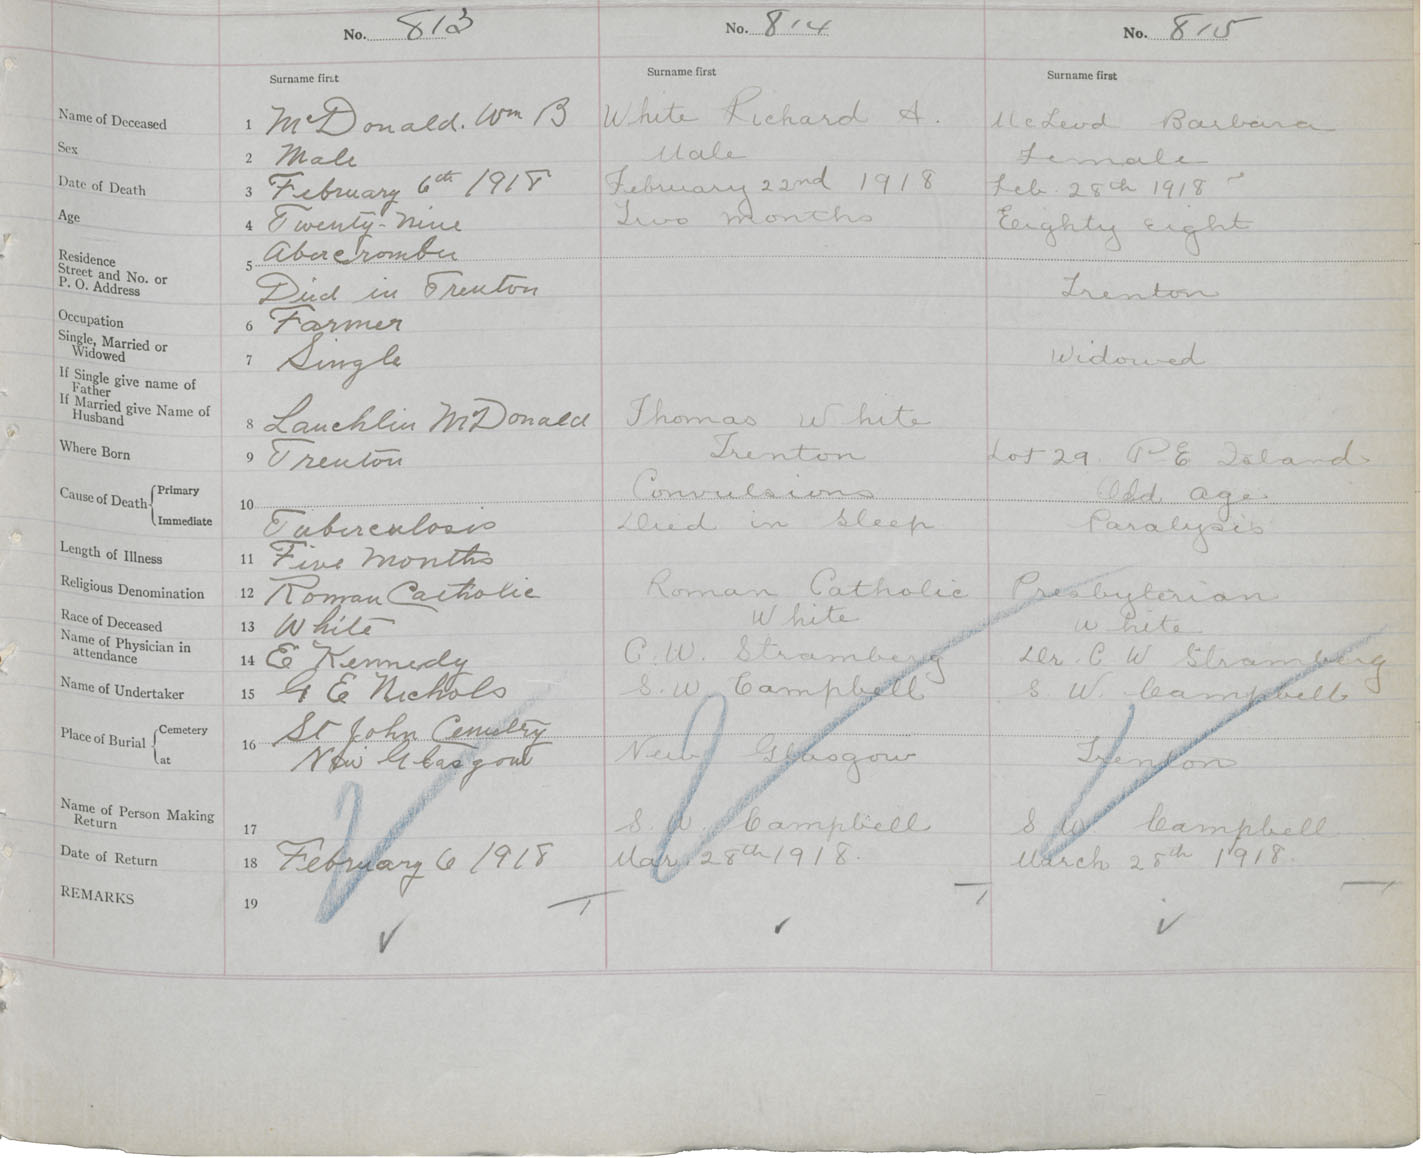 No. 813 No. 814 No. 815
Surname first Surname first Surname first
Name of Deceased 1 McDonald. Wm B White Richard A. McLeod Barbara
Sex 2 Male Male Female
Date of Death 3 February 6th 1918 February 22nd 1918 Feb. 28th 1918
Age 4 Twenty-Nine Two months Eighty eight
Residence 5 Abercrombie
Street and No. or
P. O. Address Died in Trenton Trenton
Occupation 6 Farmer
Single, Married or
Widowed 7 Single Widowed
If Single give name of
Father
If Married give Name of
Husband 8 Lauchlin McDonald Thomas White
Where Born 9 Trenton Trenton Lot 29. P.E Island
Cause of Death { Primary 10 Convulsions Old age
Immediate Tuberculosis Died in Sleep Paralysis
Length of Illness 11 Five Months
Religious Denomination 12 Roman Catholic Roman Catholic Presbyterian
Race of Deceased 13 White White White
Name of Physician in
attendance 14 E Kennedy C. W. Stramberg Dr. C W Stramberg
Name of Undertaker 15 G E Nichols S. W. Campbell S. W. Campbell
Place of Burial { Cemetery 16 St John Cemetry
at New Glasgow New Glasgow Trenton
Name of Person Making
Return 17 S. W. Campbell S W Campbell
Date of Return 18 February 6 1918 Mar. 28th 1918. March 28th 1918.
REMARKS 19